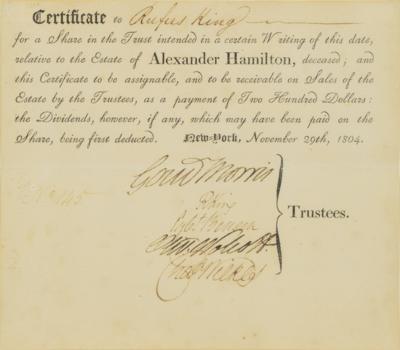 Certificate to Rufus King
for a Share in the Trust intended in a certain Writing of this date,
relative to the Estate of Alexander Hamilton, deceased; and
this Certificate to be assignable, and to be receivable on Sales of the
Estate by the Trustees, as a payment of Two Hundred Dollars:
the Dividends, however, if any, which may have been paid on the
Share, being first deducted. New-York, November 29th, 1804.
Gouv Morris
No 145
R King
Egbt Benson
Trustees.
Oliv Wolcott
Chas Wilkes